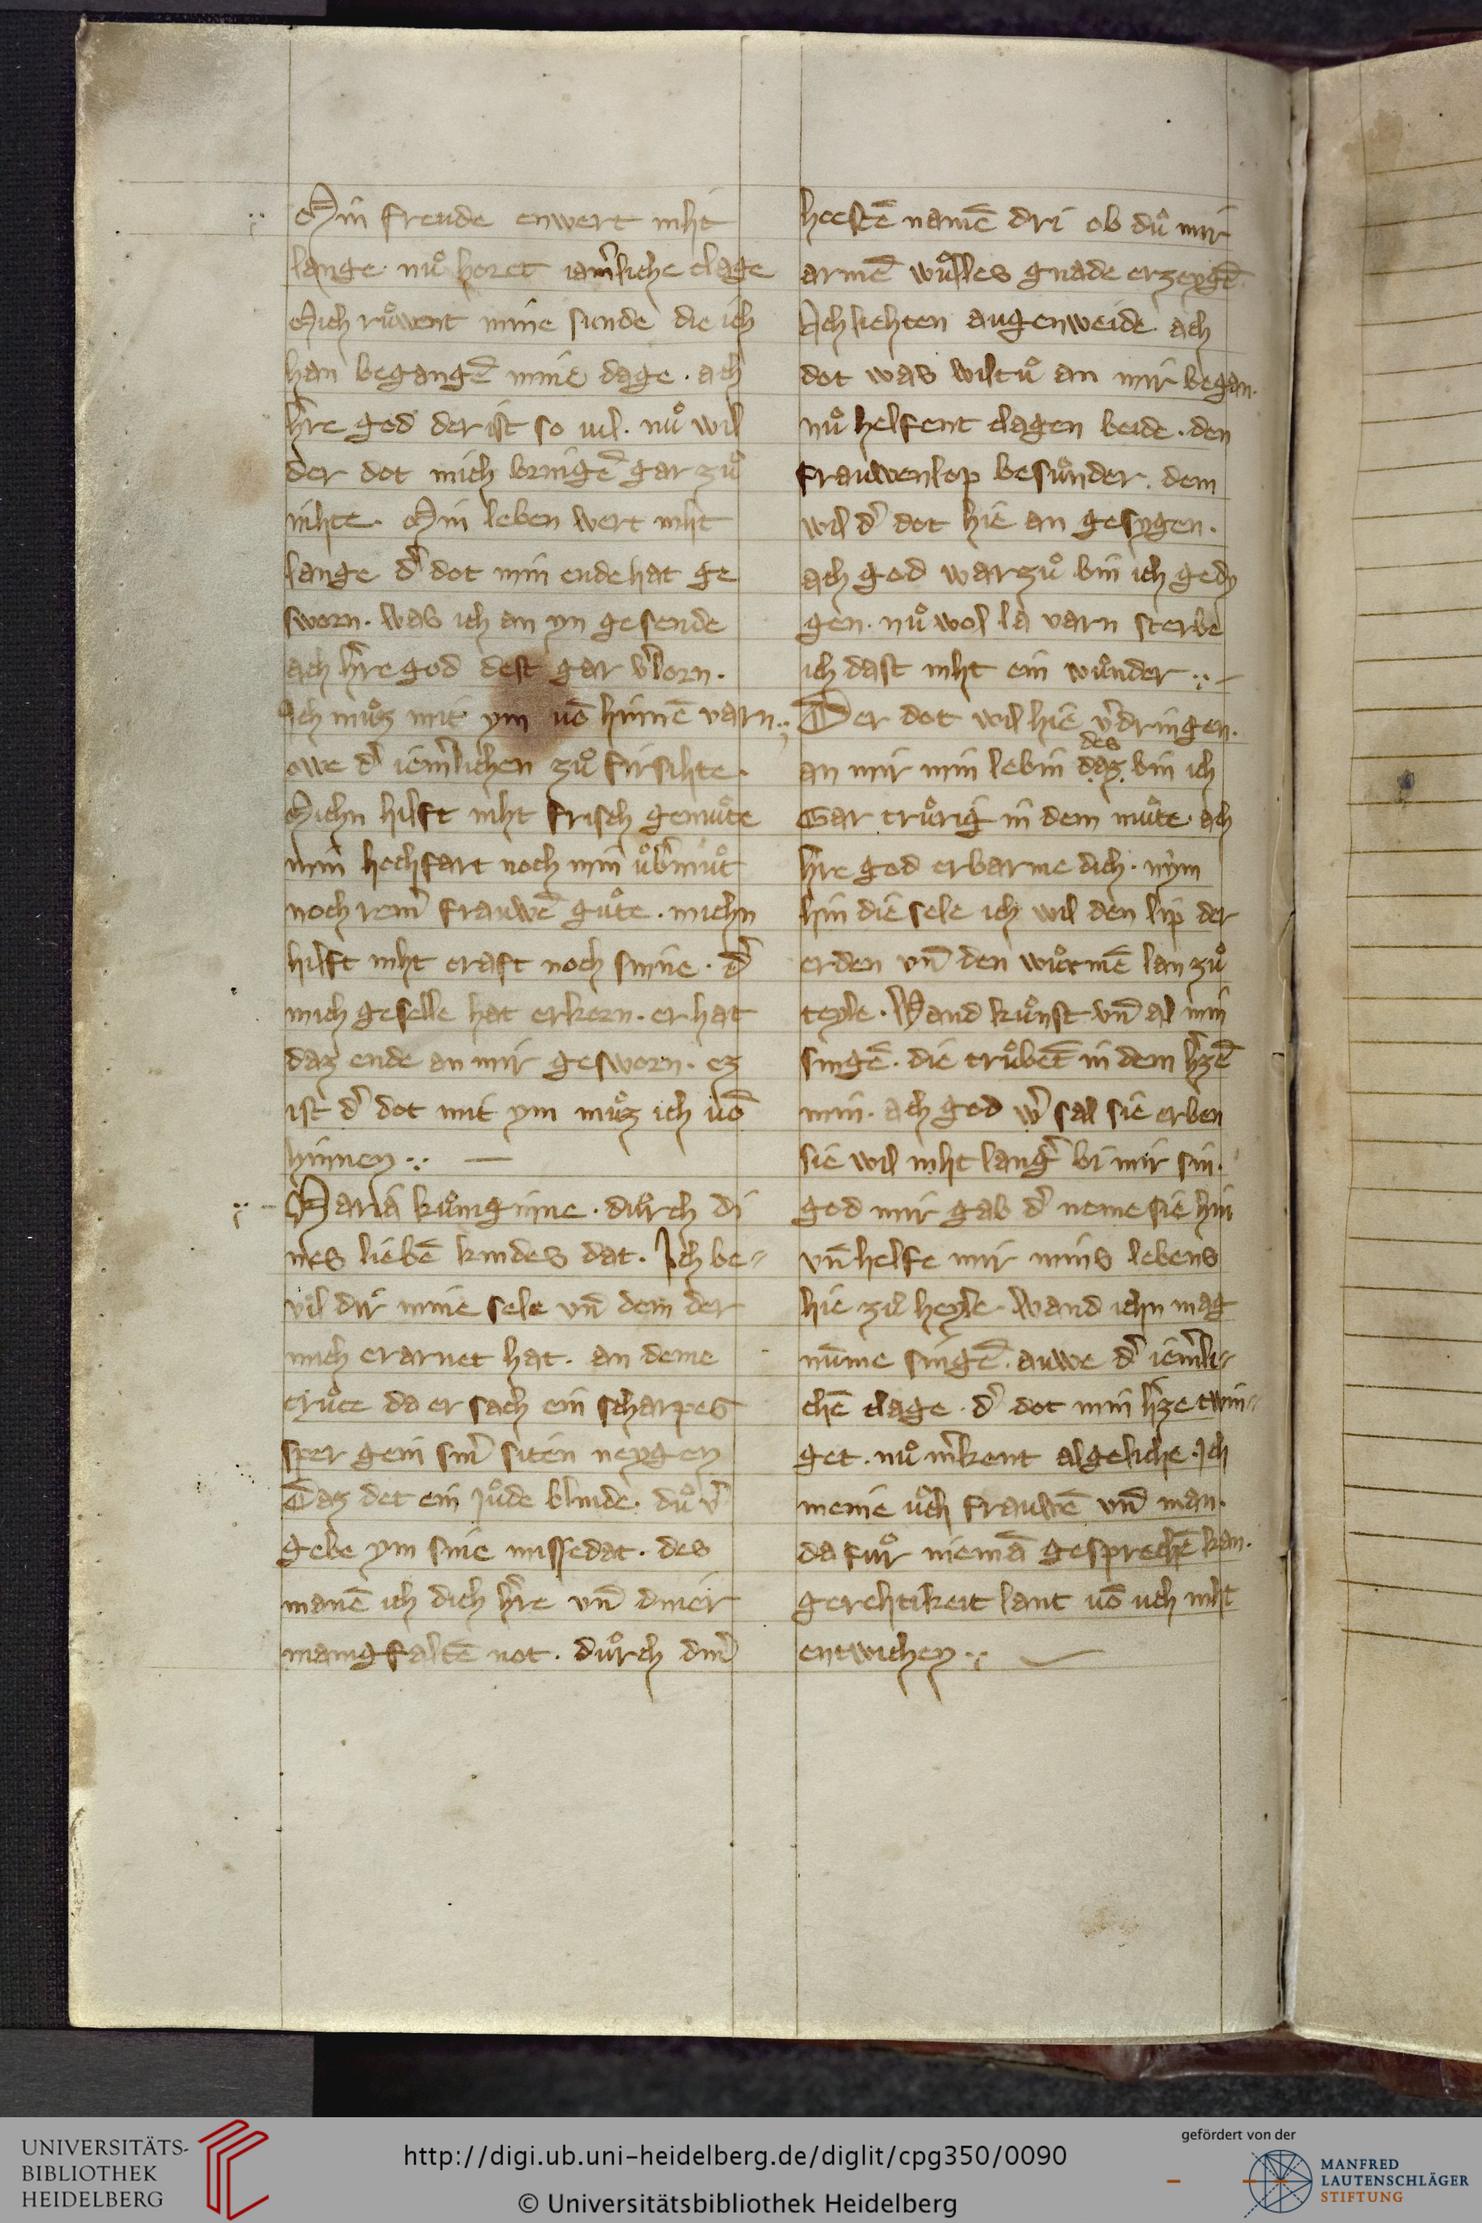 Min freude enwert niht
lange nuͦ horet iam̄liche clage
Mich ruͦwent mine sunde die ich
han begangē mine dage · ach
h̄re god der ist so vil · nuͦ wil
der dot mich bringē gar zuͦ
nihte · Min leben wert niht
lange d̄ dot min ende hat ge
sworn · was ich an yn gesende
ach h̄re god dest gar v̄lorn ·
Ich muͦz mit ym vō hinnē varn ·
owe d̄ iem̄lichen zuͦ firsihte ·
Michn hilft niht frisch gemuͦte
min hochfart noch min uͦb̄muͦt
noch rein̄ frauwē guͦte · michn
hilft niht craft noch sinne · d̄
mich geselle hat erkorn · er hat
daz ende an mir gesworn · ez
ist d̄ dot mit ym muͦz ich vō
hinnen ·
Maria kuͦniginne · durch di
nes liebē kindes dat · Ich be-
vil dir mine sele vn̄ dem der
mich erarnet hat · an deme
cruͦce da er sach ein scharpes
sper gein sin̄ siten neygen
Daz det ein juͦde blinde · duͦ v̄
gebe ym sine missedat · des
manē ich dich h̄re vn̄ diner
manigfaltē not · duͦrch din̄
hoestē namē dri ob duͦ mir
armē wuͦlles gnade erzeygē
Ach liehten augenweide · ach
dot was wiltuͦ an mir began ·
nuͦ helfent clagen beide · den
frauwenlop besuͦnder · dem
wil d̄ dot hie an gesygen ·
ach god warzuͦ bin ich gedy
gen · nuͦ wol la varn sterbe
ich dast niht ein wuͦnder ·
Der dot wil hie v̄dringen ·
des
an mir min lebin daz bin ich
Gar truͦrig in dem muͦte · ach
h̄re god erbarme dich · nym
hin die sele ich wil den lip der
erden vn̄ den wuͦrmē lan zuͦ
teyle · Wand kuͦnst vn̄ al min
singē · die truͦbēt in dem h̄zē
min · ach god w̄ sal sie erben
sie wil niht lanḡ bi mir sin ·
god mir gab d̄ neme sie hin
vn̄ helfe mir mins lebens
hie zil heyle · Wand ichn mag
nūme singē · auwe d̄ iem̄li-
chē clage · d̄ dot min h̄ze twin-
get · nuͦ m̄kent algeliche · Ich
meine uͦch frauwē vn̄ man ·
da fuͦr niemā gesprechē kan ·
gerehtikeit lant vō uch niht
entwichen ·
UNIVERSITÄTS-
BIBLIOTHEK
HEIDELBERG
http://digi.ub.uni-heidelberg.de/diglit/cpg350/0090
© Universitätsbibliothek Heidelberg
gefördert von der
MANFRED
LAUTENSCHLÄGER
STIFTUNG